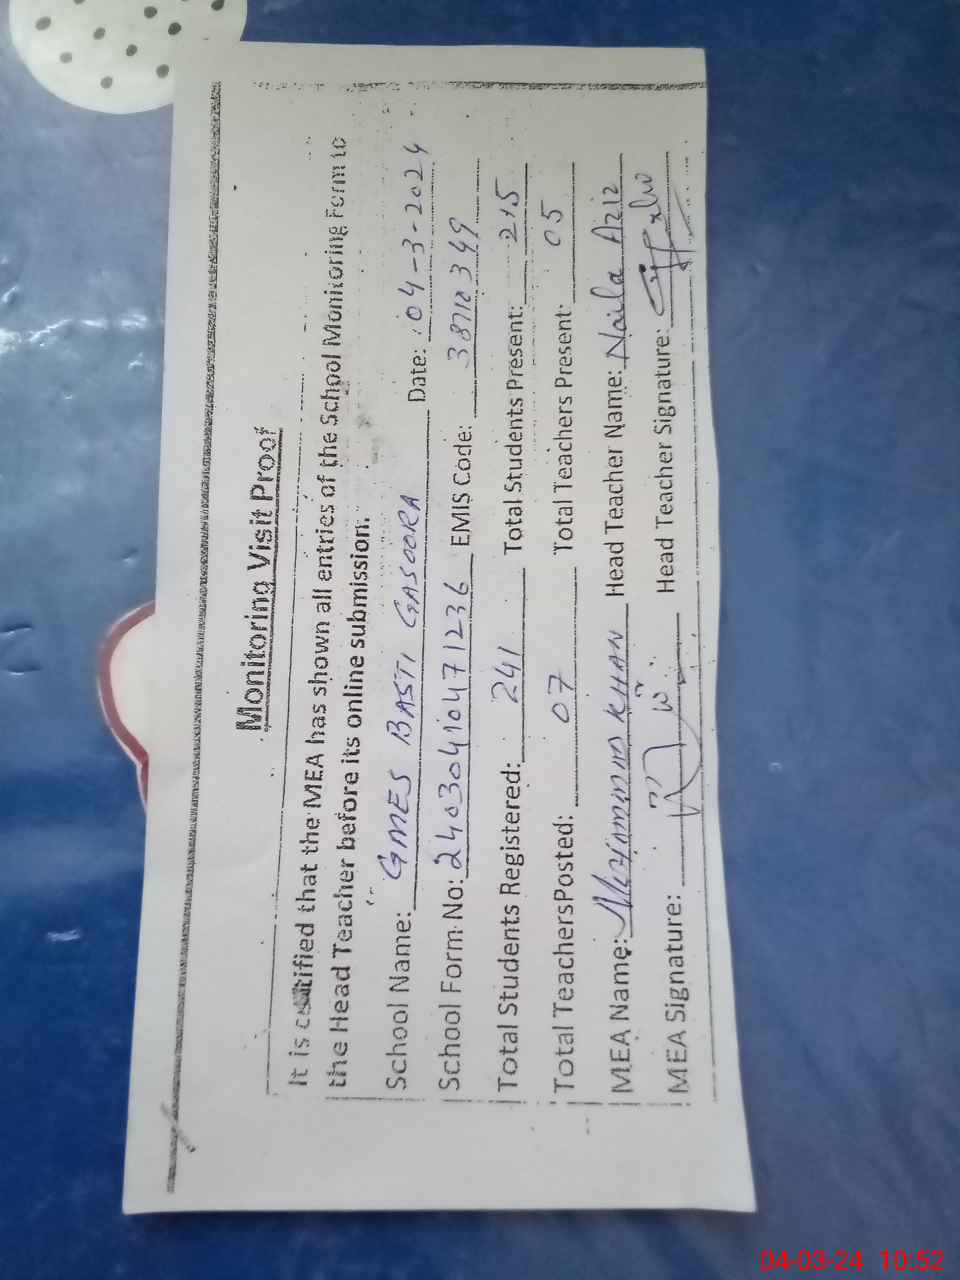 Monitoring Visit Proof
It is certified that the MEA has shown all entries of the School Monitoring Form to
the Head Teacher before its online submission.
School Name: GMES BASTI GASOORA Date: 04-3-2024
School Form No: 24030410471236 EMIS Code: 38710349
Total Students Registered: 241 Total Students Present: 215
Total TeachersPosted: 07 Total Teachers Present: 05
MEA Name: KHAN Head Teacher Name: Naila Aziz
MEA Signature: Head Teacher Signature:
04-03-24 10:52